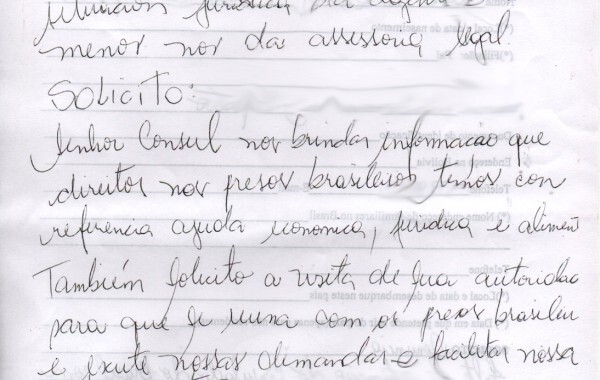 situacion juridica da
menor nos da assessoria legal.
Solicito:
Senhor Consul nos brindar informacao que
direitos nos presos brasileiros temos con
referencia ajuda economica, juridica e alimen
Também solicito a visita de sua autoridad
para que se reuna com os presos brasilei
e escute nossas demandas e facilitar nossa